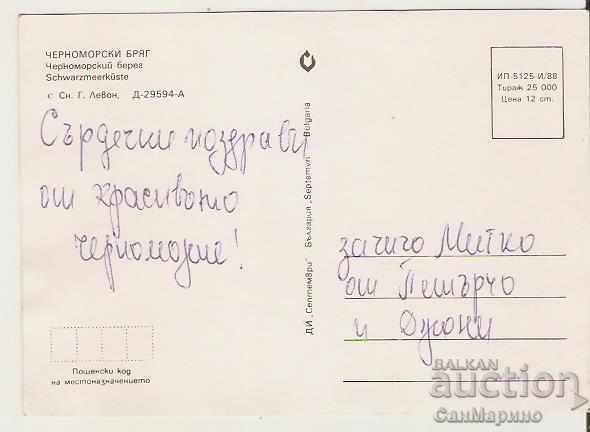 ЧЕРНОМОРСКИ БРЯГ
Черноморский берег
Schwarzmeerküste
с Сн. Г. Левон, Д-29594-А
ИП-5125-И/88
Тираж 25 000
Цена 12 ст.
Сърдечни поздрави
от красивото
черноморие!
ДИ „Септември" България „Septemvri" Bulgaria
за чичо Митко
от Петърчо
и Джони
Пощенски код
на местоназначението
BALKAN
auction
СанМарино